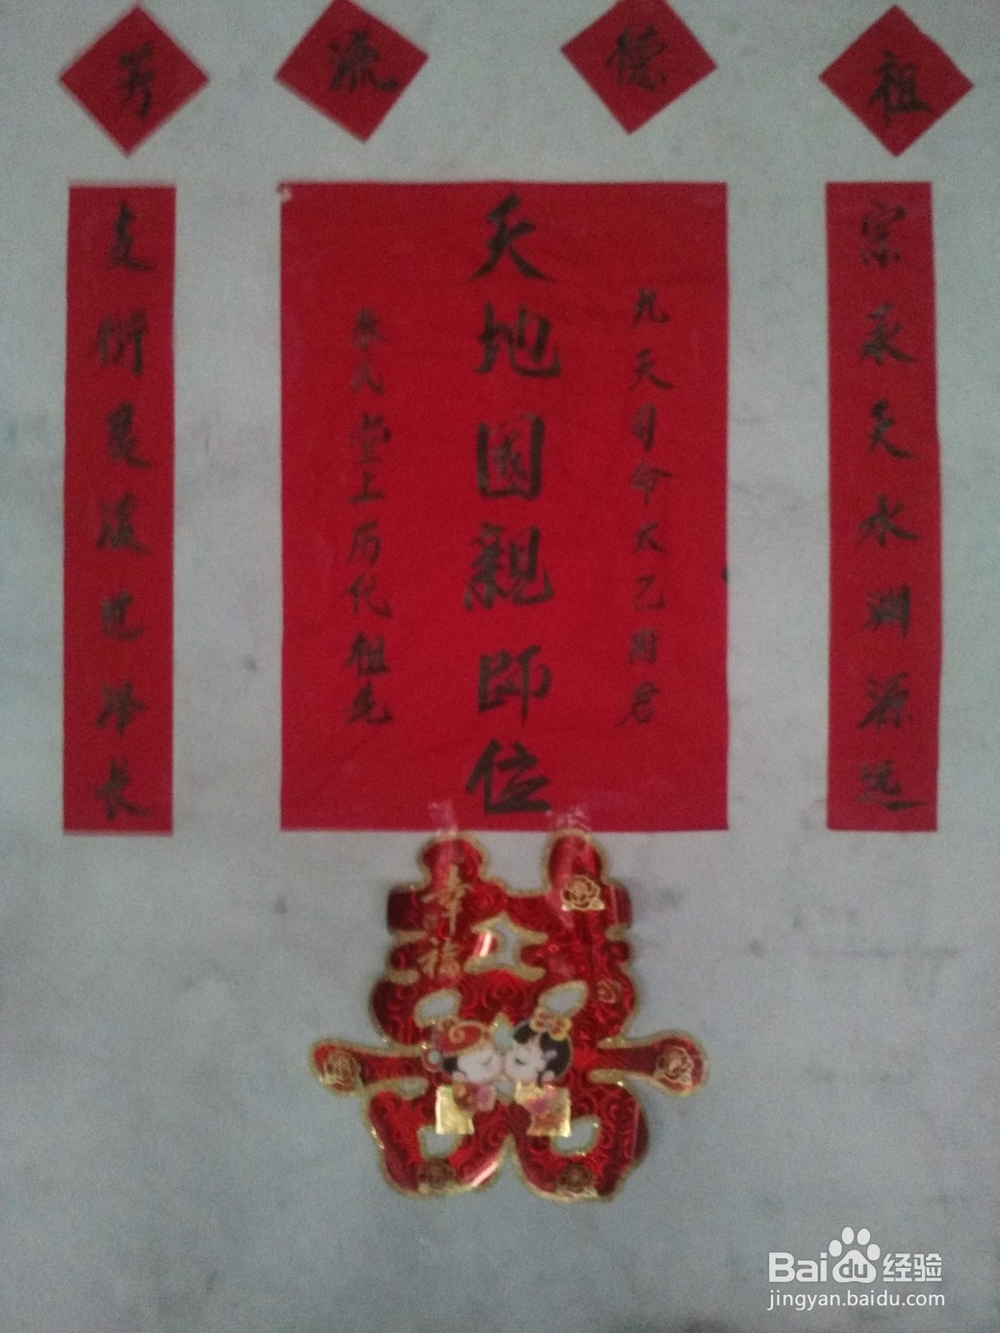 祖德流芳
宗承天水渊源远
九天司命太乙府君
天地國親師位
氏堂上历代祖先
支衍世泽长
幸福
囍
Baidu经验
jingyan.baidu.com